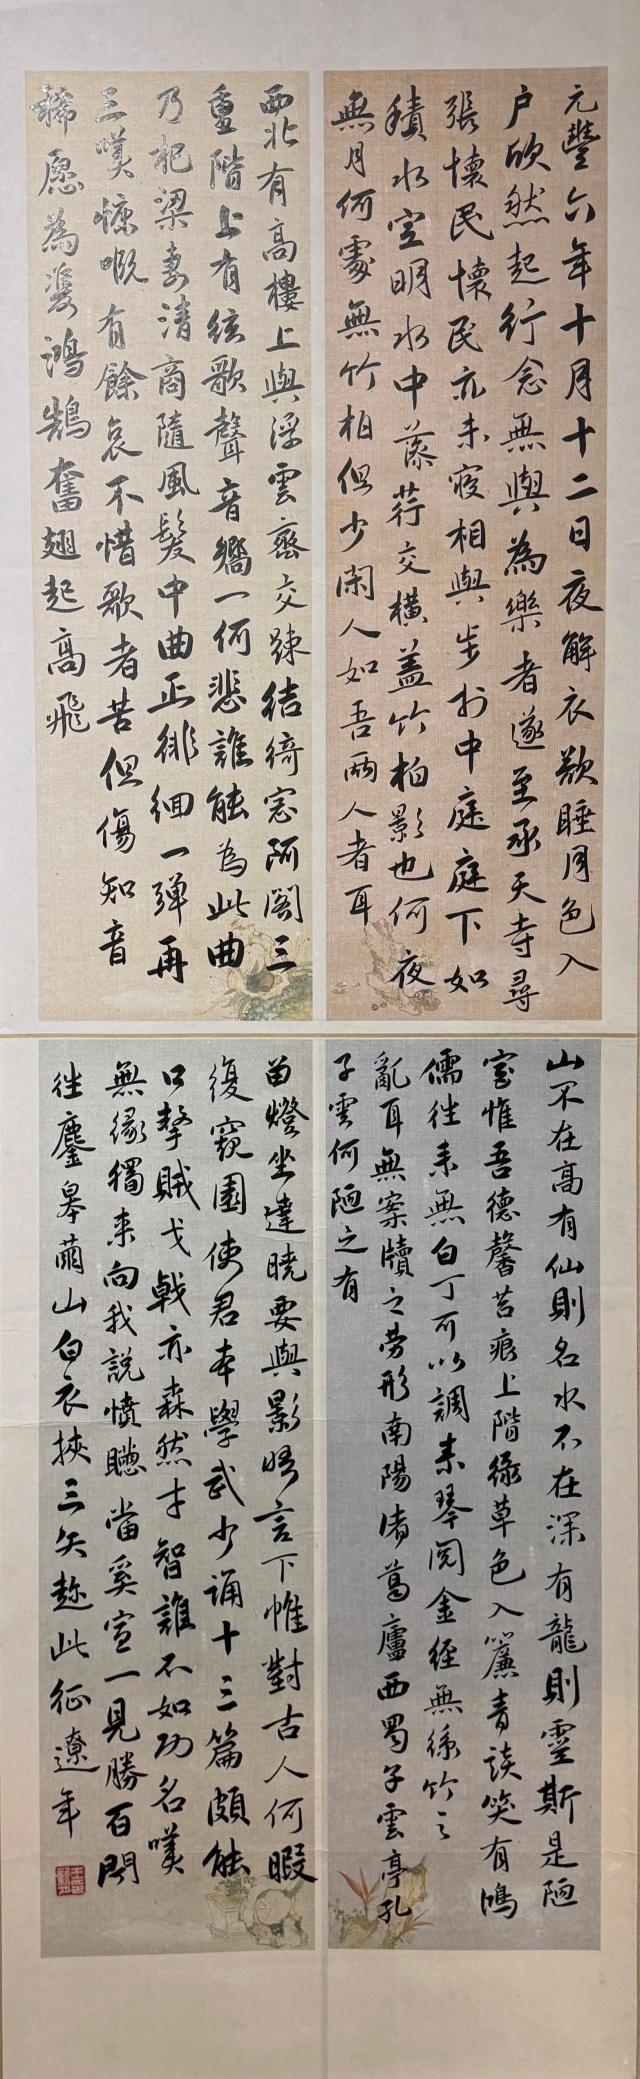 元豐六年十月十二日夜解衣欲睡月色入
户欣然起行念無與為樂者遂至承天寺尋
張懷民懷民亦未寢相與步於中庭庭下如
積水空明水中藻荇交橫蓋竹柏影也何夜
無月何處無竹柏但少閑人如吾兩人者耳
西北有高樓上與浮雲齊交疎結綺窓阿閣三
重階上有絃歌聲音響一何悲誰能為此曲
乃杞梁妻清商隨風髮中曲正徘徊一彈再
三嘆慷慨有餘哀不惜歌者苦但傷知音
稀愿為雙鴻鵠奮翅起高飛
山不在高有仙則名水不在深有龍則靈斯是陋
室惟吾德馨苔痕上階綠草色入簾青談笑有鴻
儒往来無白丁可以調素琴閱金經無絲竹之
亂耳無案牘之勞形南陽诸葛廬西蜀子雲亭孔
子雲何陋之有
留燈坐達曉要與影晤言下帷對古人何暇
復窺園使君本學武少誦十三篇頗能
口擊賊戈戟亦森然才智誰不如功名嘆
無緣獨来向我説憤懣當奚宣一見勝百聞
往鏖皋蘭山白衣挾三矢趁此征遼年